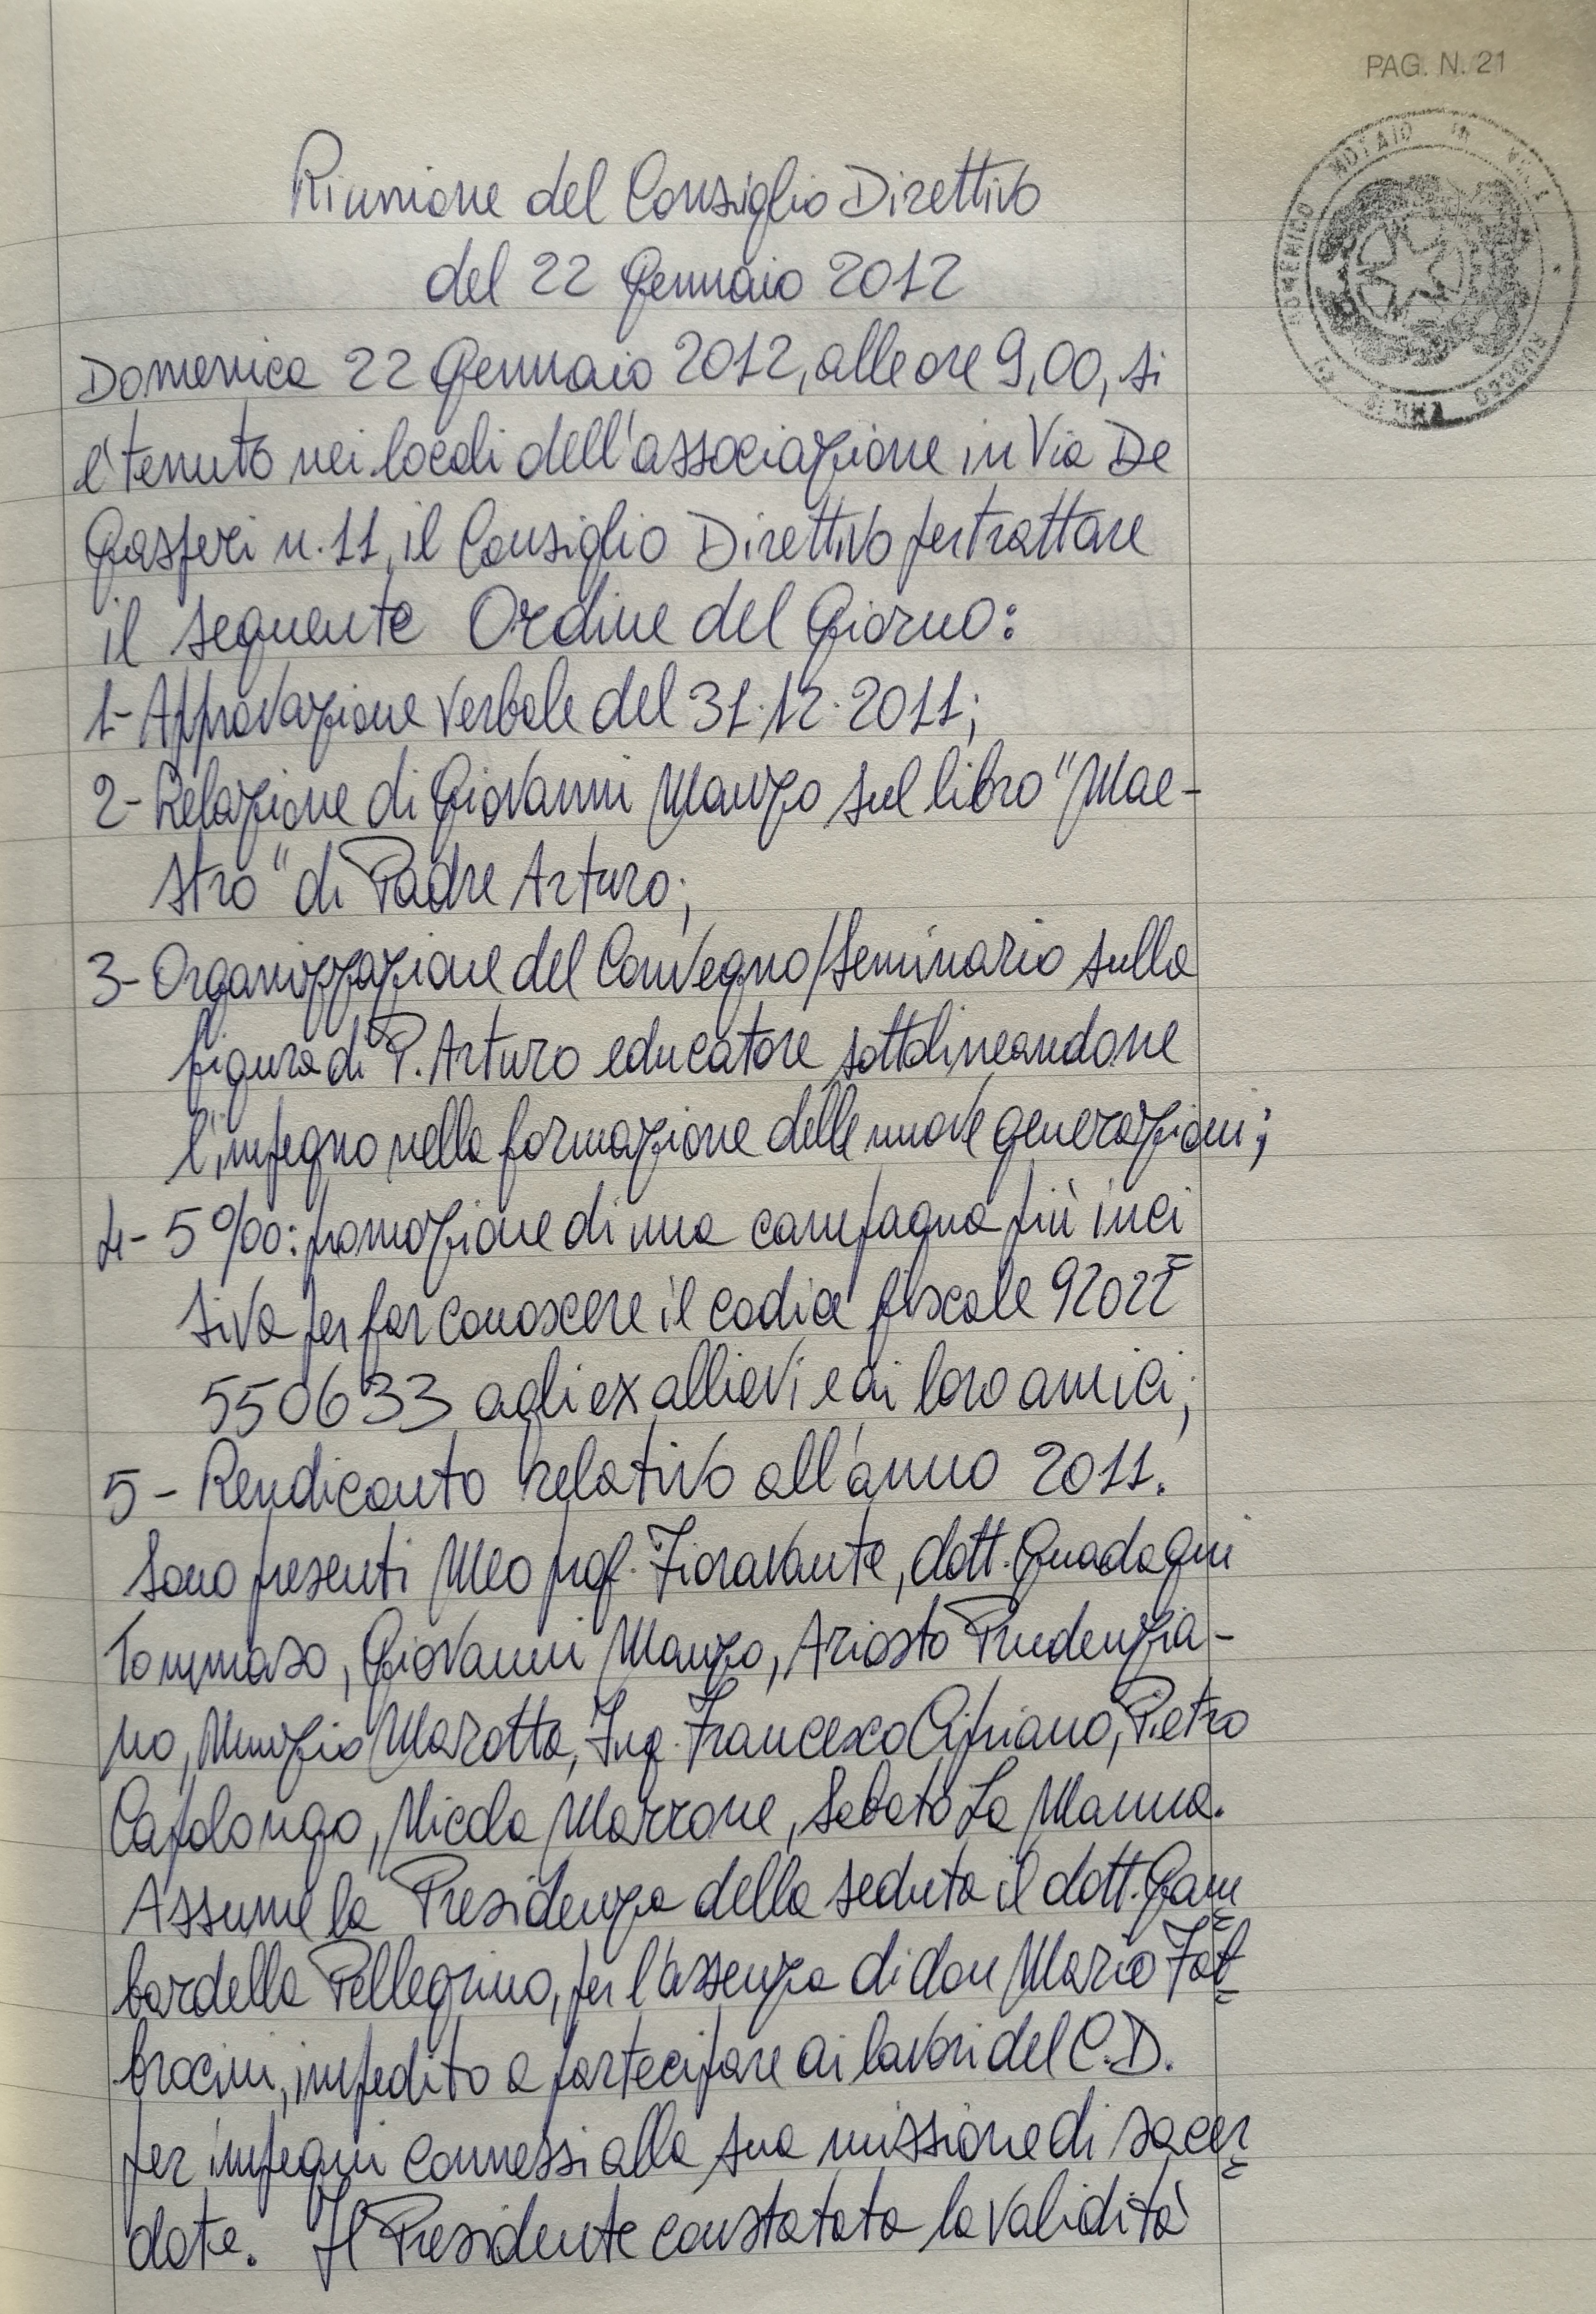 PAG. N. 21
NOTAIO IN
Riunione del Consiglio Direttivo
del 22 Gennaio 2012
Domenica 22 Gennaio 2012, alle ore 9,00, si
è tenuto nei locali dell'associazione in Via De
Gasperi n. 11, il Consiglio Direttivo per trattare
il seguente Ordine del Giorno:
1- Approvazione verbale del 31.12.2011;
2- Relazione di Giovanni Manzo sul libro "Mae-
stro" di Padre Arturo;
3- Organizzazione del Convegno/Seminario sulla
figura di P. Arturo educatore sottolineandone
l'impegno nella formazione delle nuove generazioni;
4- 5‰: promozione di una campagna più inci
siva per far conoscere il codice fiscale 92022
550633 agli ex allievi e ai loro amici;
5- Rendiconto relativo all'anno 2011.
Sono presenti Meo prof. Fioravante, dott. Guadagni
Tommaso, Giovanni Manzo, Ariosto Prudenzia-
no, Nunzio Marotta, Ing. Francesco Cipriano, Pietro
Capolongo, Nicola Marrone, Sabato La Manna.
Assume la Presidenza della seduta il dott. Gam
bardella Pellegrino, per l'assenza di don Mario Fab
brocini, impedito a partecipare ai lavori del C.D.
per impegni connessi alla sua missione di sacer
dote. Il Presidente constatata la validità